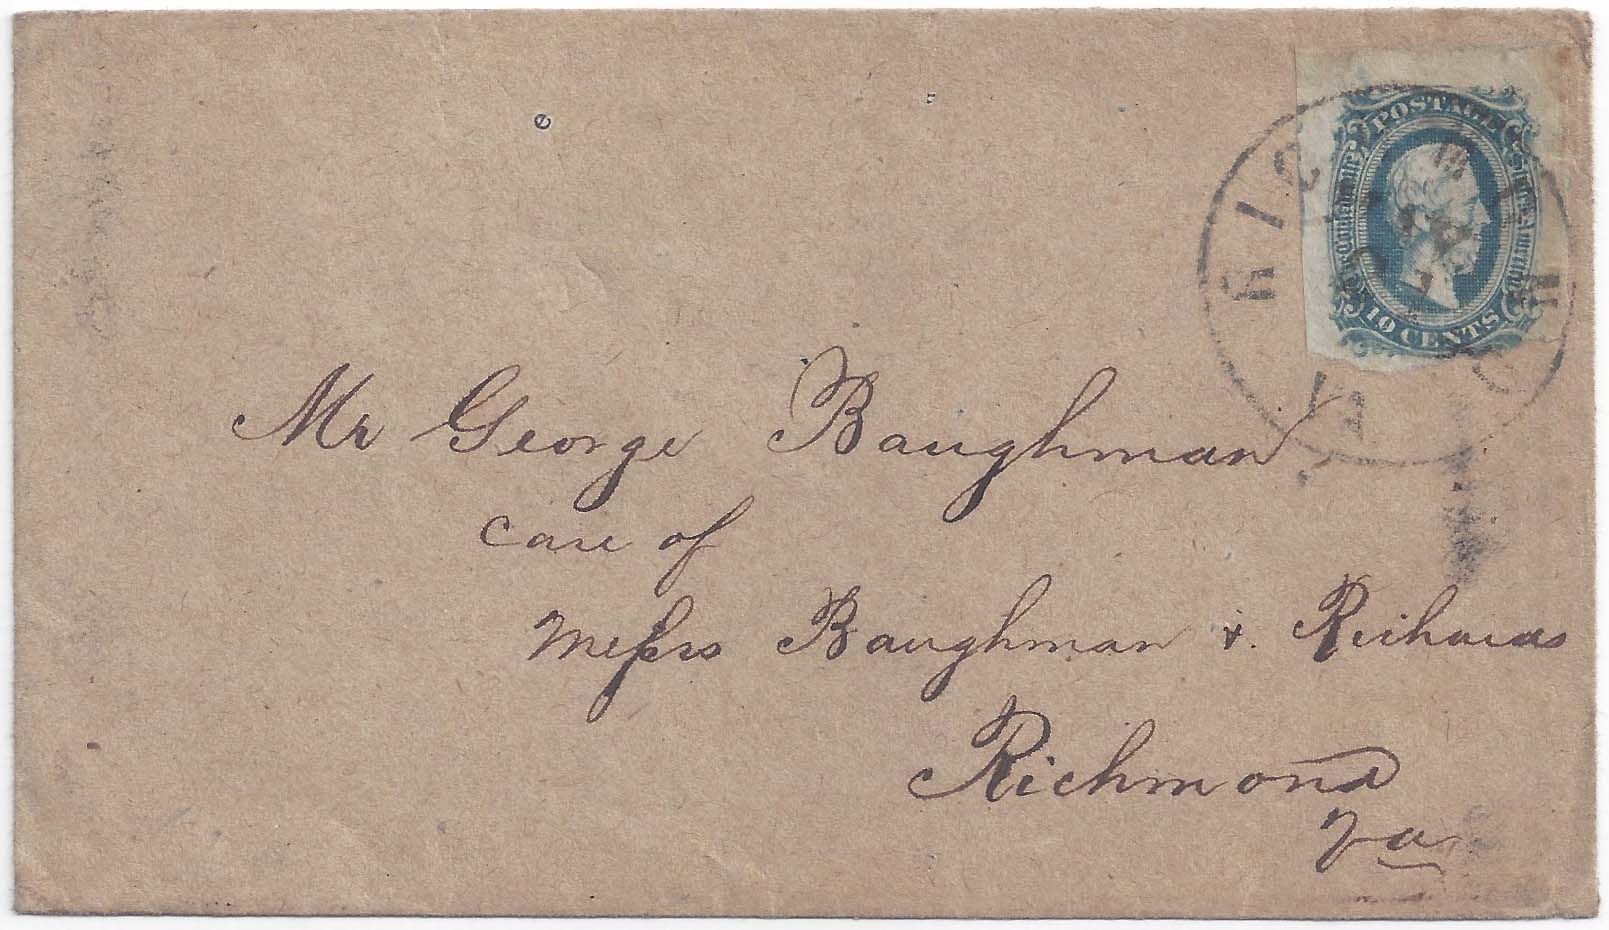 e
POSTAGE
The Confederate States of America
10 CENTS
RICHMOND
VA
Mr George Baughman
Care of
Messrs Baughman & Richards
Richmond
Va